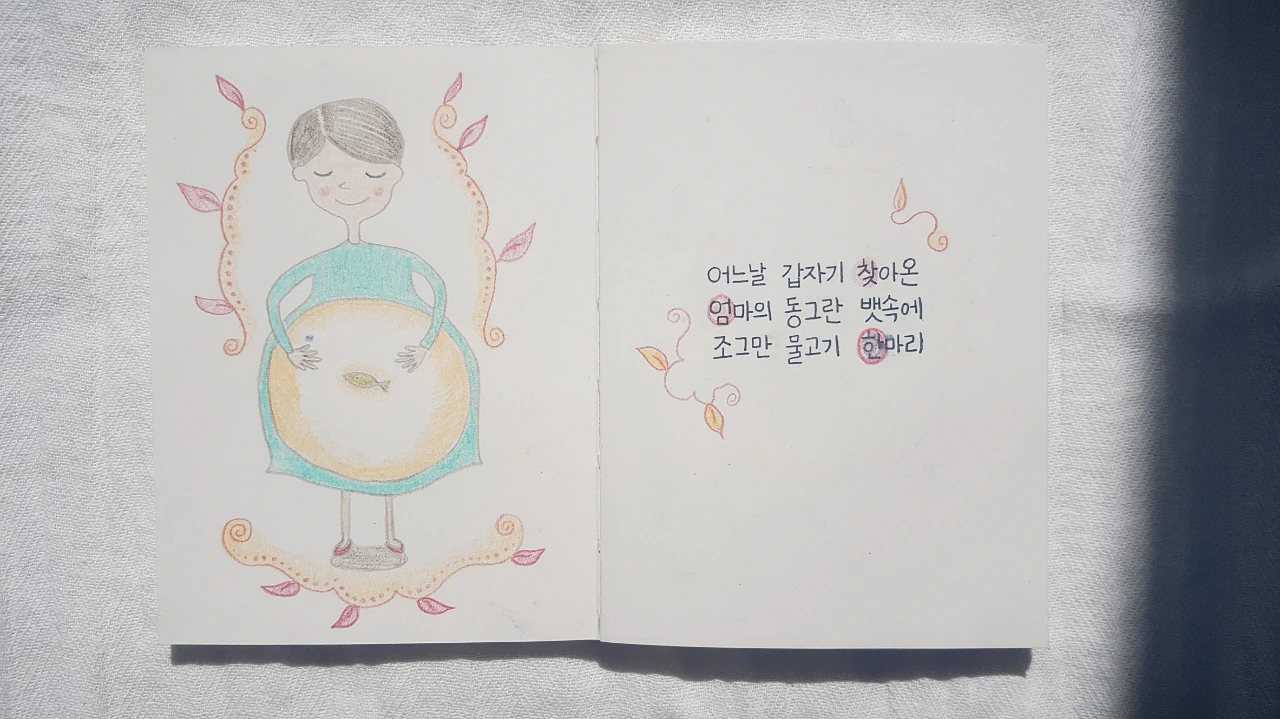 어느날 갑자기 찾아온
엄마의 동그란 뱃속에
조그만 물고기 한마리